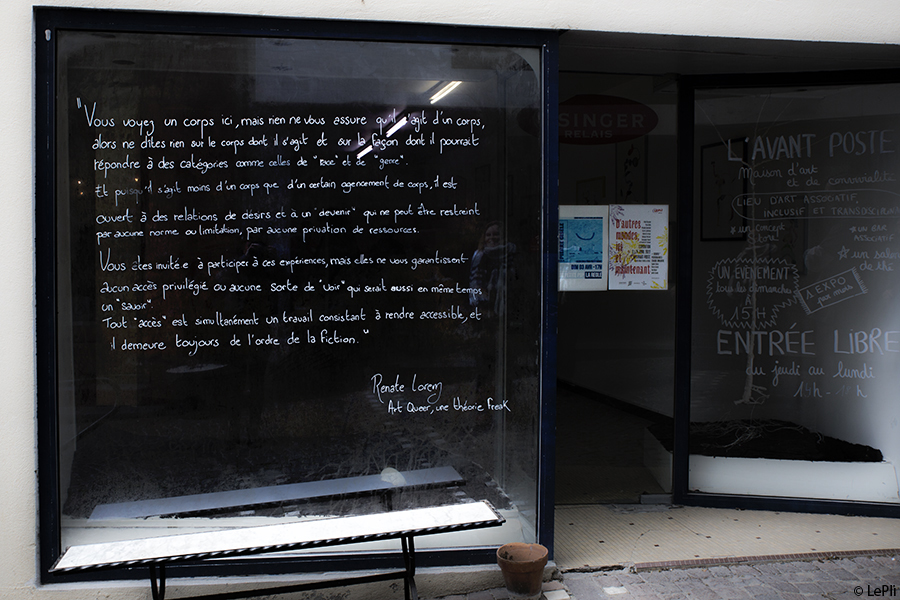 "Vous voyez un corps ici, mais rien ne vous assure qu'il s'agit d'un corps,
alors ne dites rien sur le corps dont il s'agit et sur la façon dont il pourrait
répondre à des catégories comme celles de "race" et de "genre".
Et puisqu'il s'agit moins d'un corps que d'un certain agencement de corps, il est
ouvert à des relations de désirs et à un "devenir" qui ne peut être restreint
par aucune norme ou limitation, par aucune privation de ressources.
Vous êtes invité e à participer à ces expériences, mais elles ne vous garantissent
aucun accès privilégié ou aucune sorte de "voir" qui serait aussi en même temps
un "savoir".
Tout "accès" est simultanément un travail consistant à rendre accessible, et
il demeure toujours de l'ordre de la fiction."
Renate Lorenz
Art Queer, une théorie Freak
SINGER
RELAIS
D'autres
mondes,
ici
et
maintenant
L'AVANT POSTE
Maison d'art
et de convivialité
LIEU D'ART ASSOCIATIF,
INCLUSIF ET
* un concept
Store
* un bar
associatif
* un salon
de thé
UN ÉVENEMENT
tous les dimanches
à
15h
1 EXPO
par mois
ENTRÉE LIBRE
du jeudi au lundi
© LePli